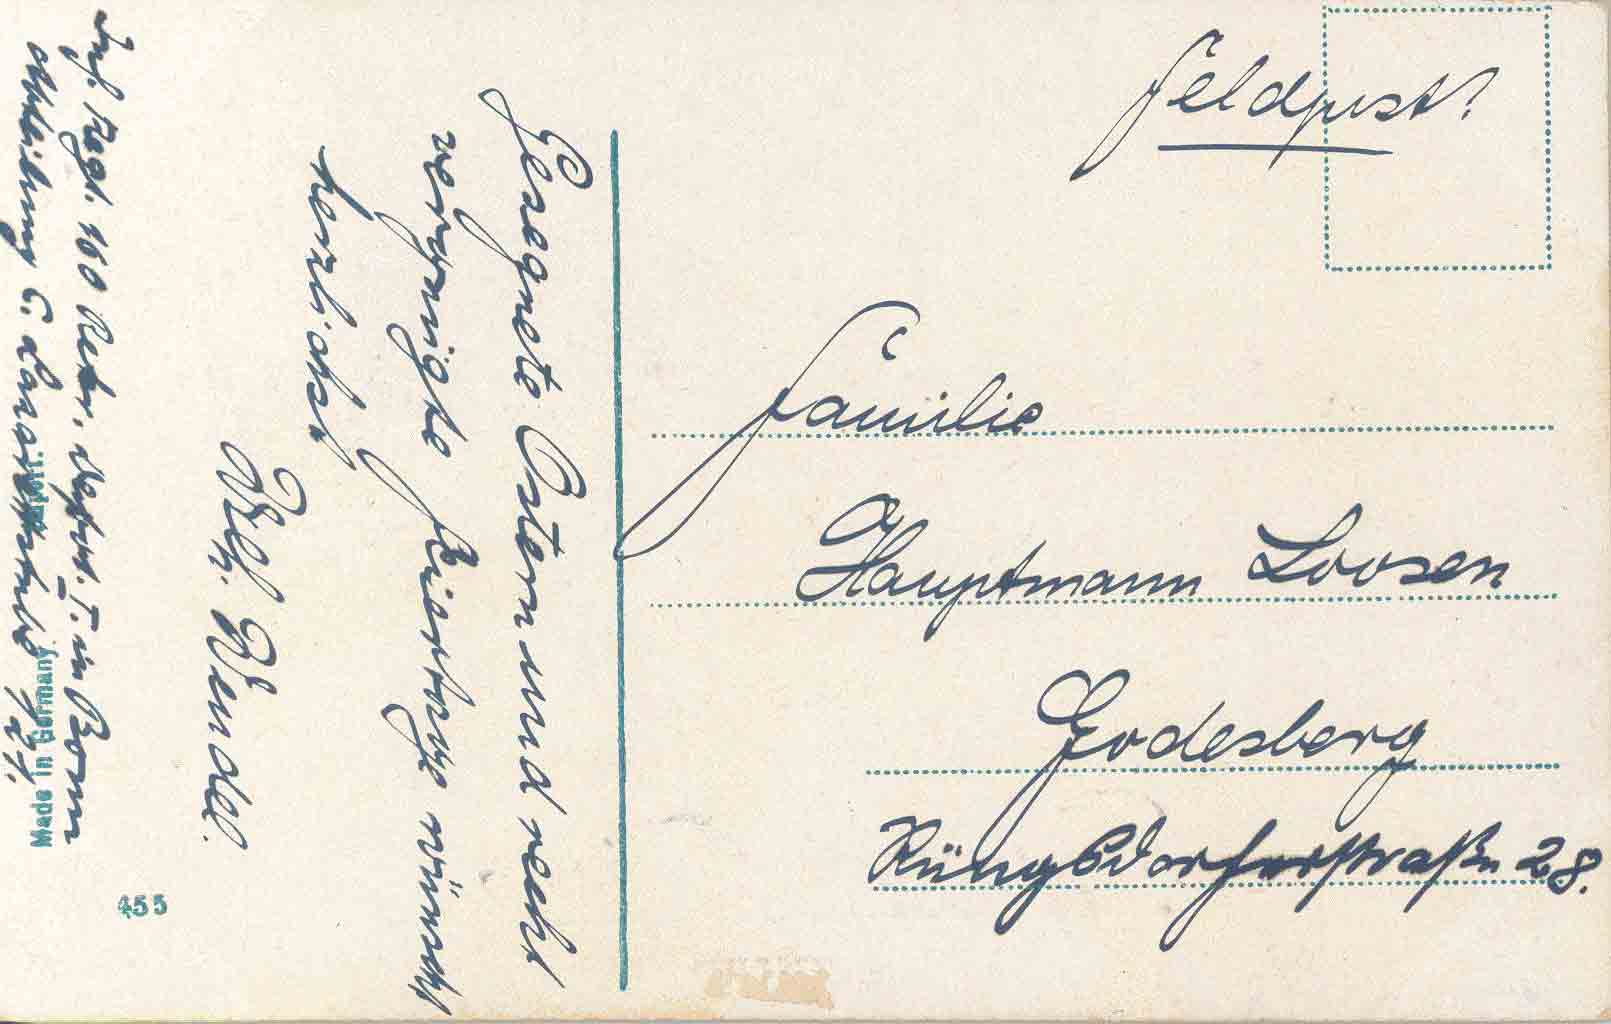 Feldpost!
Familie
Hauptmann Loosen
Godesberg
Rüngsdorferstraße 28.
Gesegnete Ostern und recht
vergnügte Feiertage wünscht
herzlichst
Wilh. Wendel.
Inf. Regt. 160 Rekr. Depot. I. in Bonn
Abteilung C.
Made in Germany
455